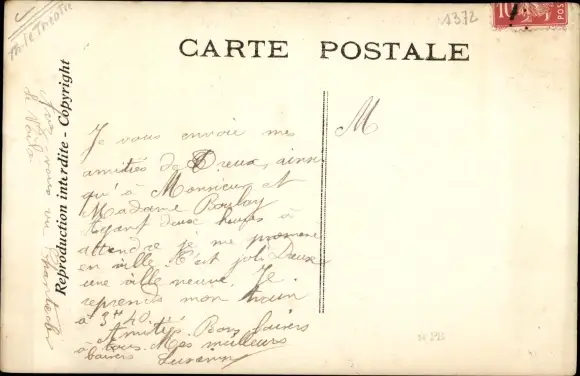 1372
CARTE POSTALE
10
POS
Reproduction interdite - Copyright
Je vous envoie mes
amitiés de Dreux, ainsi
qu'à Monsieur et
Madame Boulay
Ayant deux heures à
attendre je me promène
en ville. C'est joli Dreux
une ville neuve. Je
reprends mon train
à 3h40.
Amitiés. Bons baisers
à tous. Mes meilleurs
baisers
M
vous vu